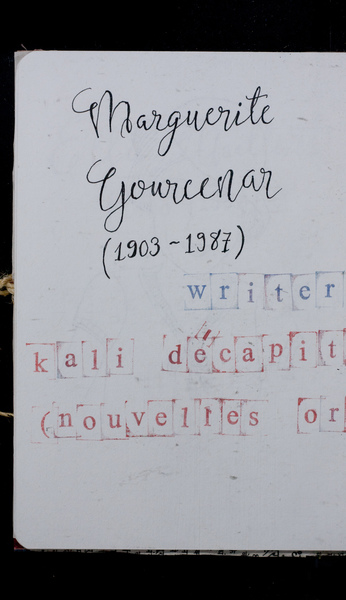 Marguerite
Yourcenar
(1903 ~ 1987)
writer
kali décapit
(nouvelles or